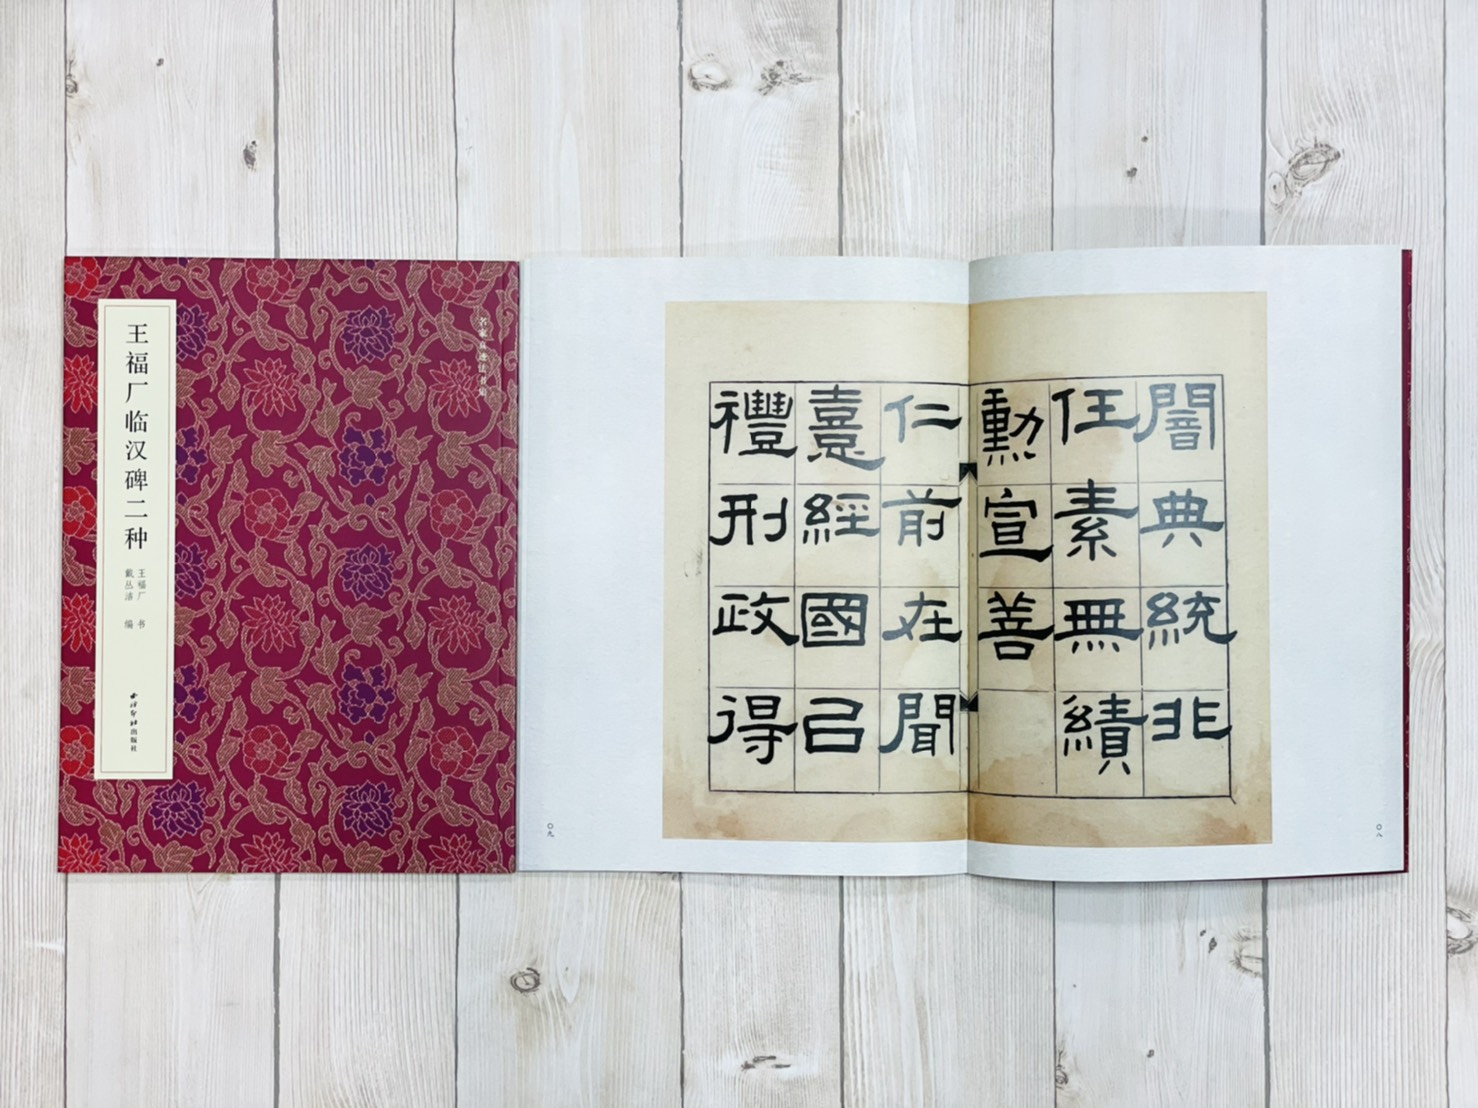 王福厂临汉碑二种
王福厂 书
戴丛洁 编
西泠印社出版社
名家真迹法书苑
闇典統非
任素無績
勳宣善
仁前在聞
憙經國以
禮刑政得
〇九
〇八